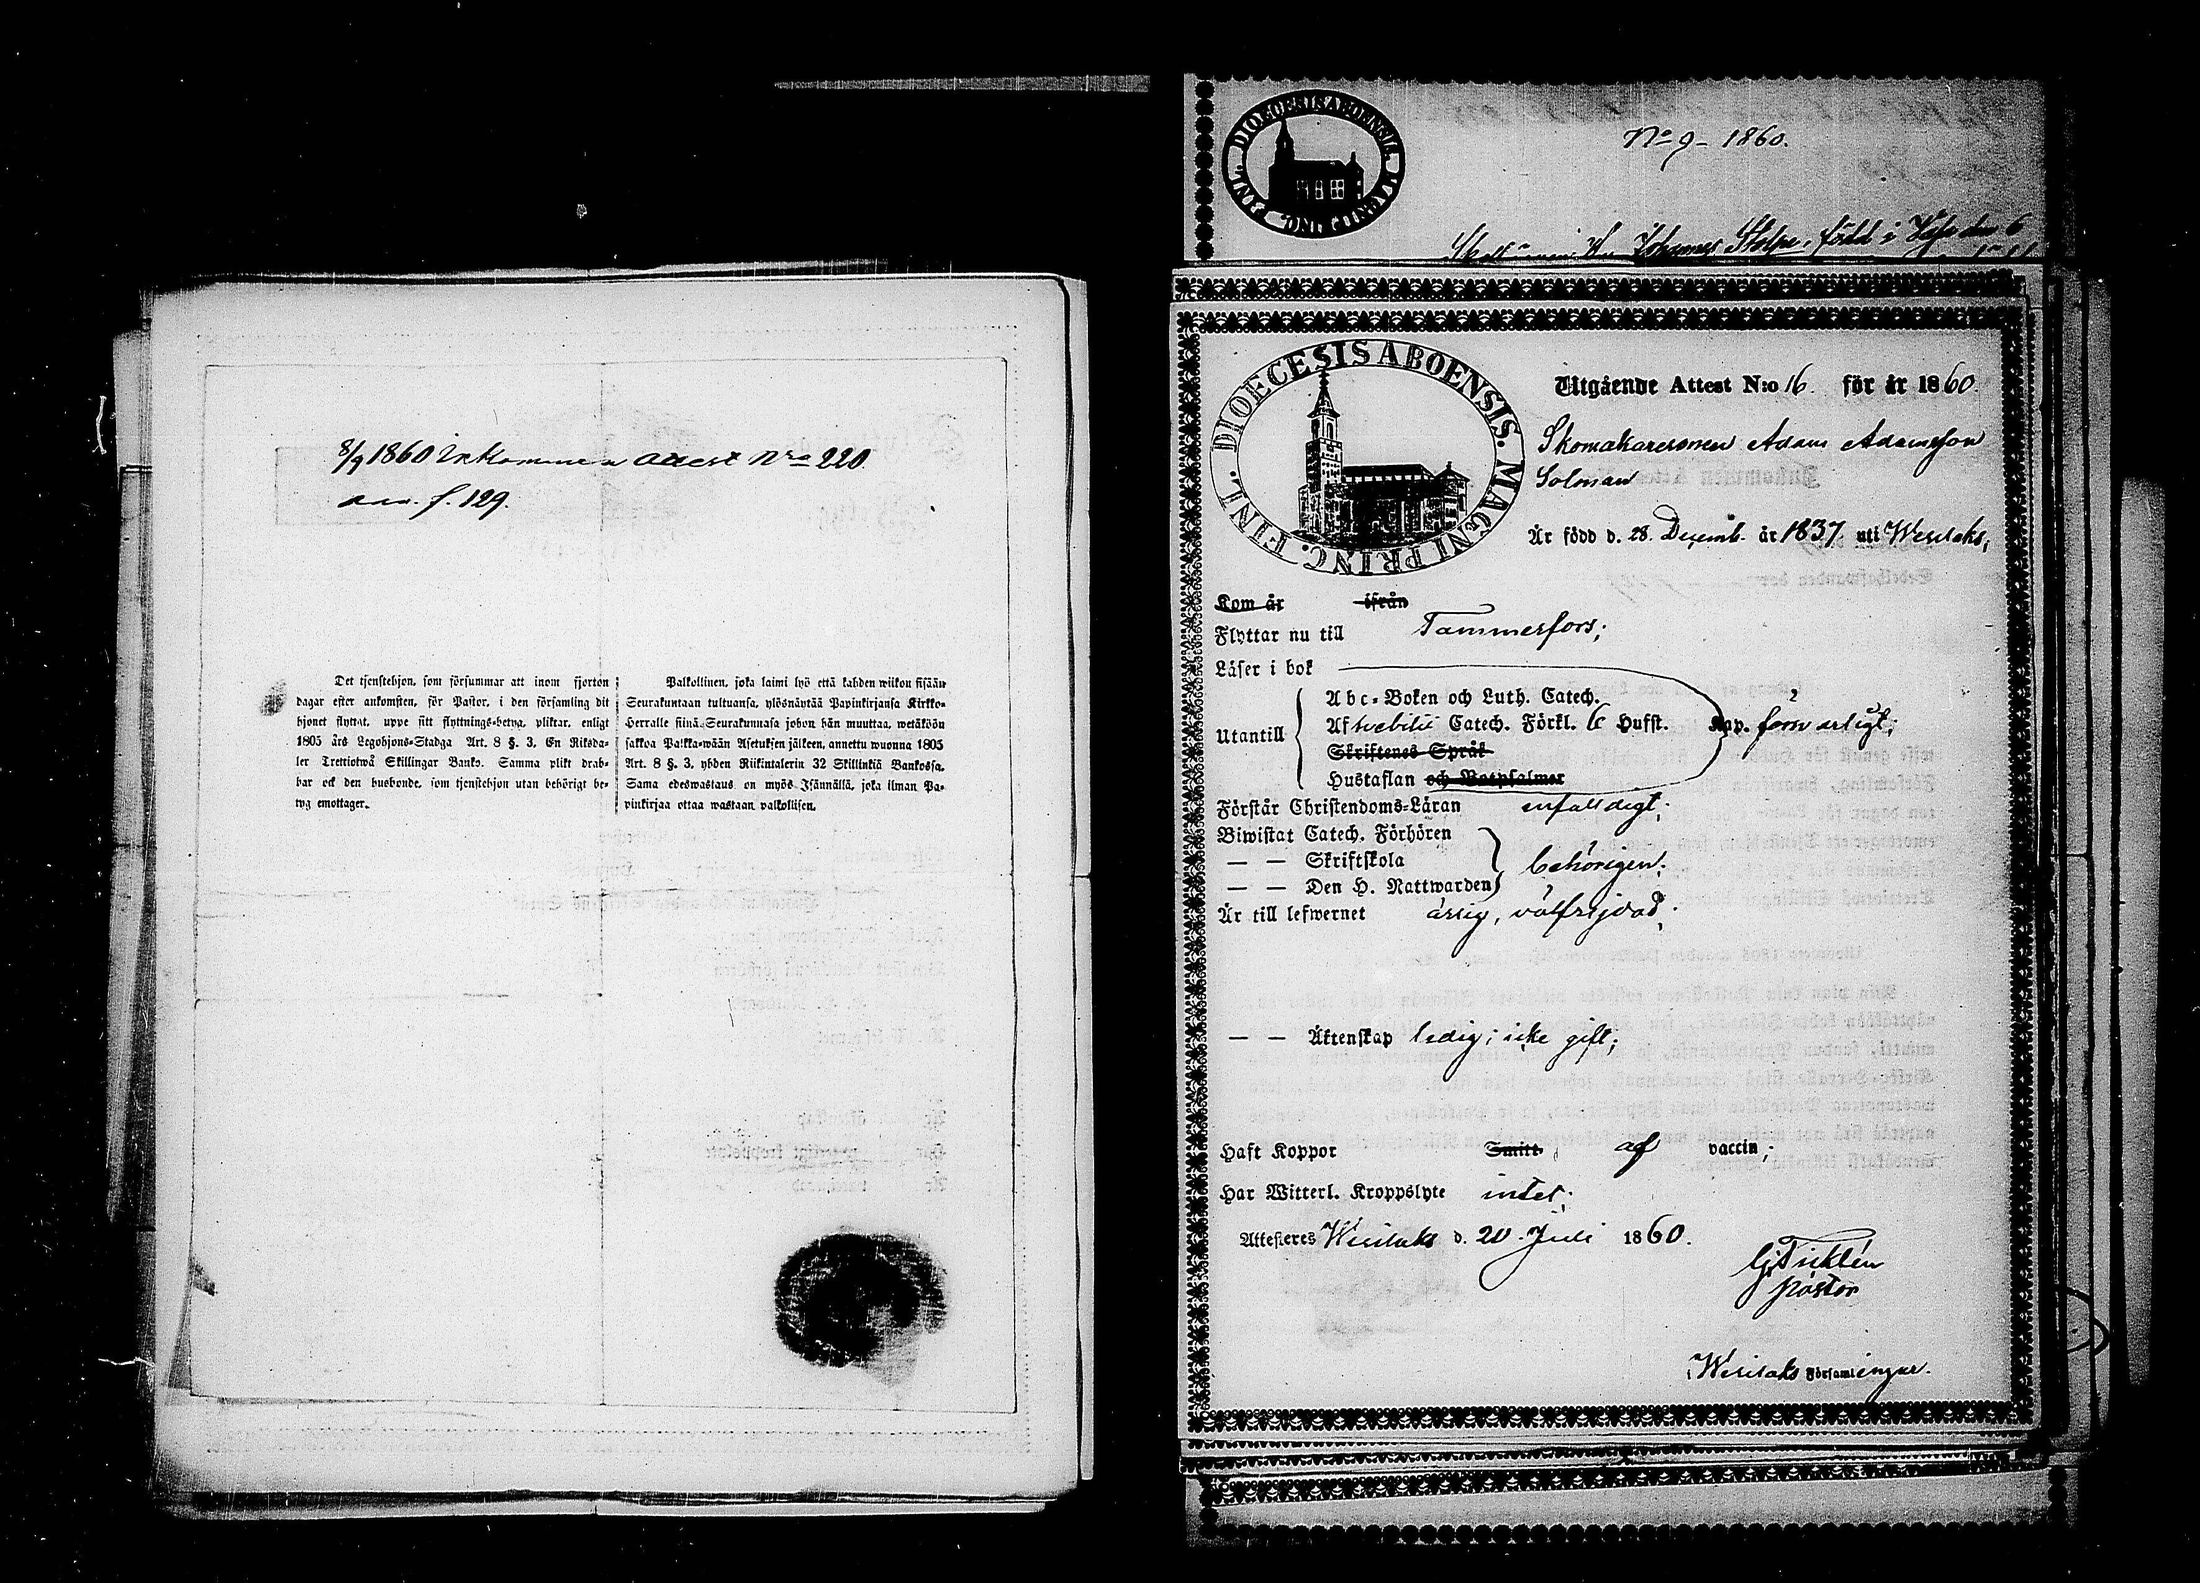 8/9 1860 Inkommen attest Nro 220
ann. f. 129.
Det tjenstehjon, som försummar att inom fjorton
dagar efter ankomsten, för Pastor, i den församling dit
hjonet flyttat, uppe sitt flyttnings-betyg, pliktar, enligt
1805 års Legohjons-Stadga Art. 8 §. 3, En Riksda-
ler Trettiotwå Skillingar Banko. Samma plikt drab-
bar ock den husbonde, som tjenstehjon utan behörigt be-
tyg emottager.
Palkollinen, joka laimi lyö että kahden wiikon sisään
Seurakuntaan tultuansa, ylösnäyttää Papinkirjansa Kirkko-
Herralle siinä Seurakunnasa johon hän muuttaa, wetäköön
sakkoa Palkka-wään Asetuksen jälkeen, annettu wuonna 1805
Art. 8 §. 3, yhden Riikintalerin 32 Skillinkiä Bankossa.
Sama edeswastaus on myös Isännällä, joka ilman Pa-
pinkirjaa ottaa wastaan palkollisen.
DIOECESIS ABOENSIS. MAGNI PRINC. FINL.
No 9 - 1860.
Johannes Stolpe, född i den 6
DIOECESIS ABOENSIS. MAGNI PRINC. FINL.
Utgående Attest N:o 16 för år 1860.
Skomakaresonen Adam Adamsson
Solman
Är född d. 28. Decemb. år 1837. uti Wesilaks;
Kom år ifrån
Flyttar nu till Tammerfors;
Läser i bok
Utantill
Abc-Boken och Luth. Catech.
Af Svebilii Catech. Förkl. 6 Hufst. Kap. försvarligt;
Skriftenes Språk
Hustaflan och Botpsalmer
Förstår Christendoms-Läran enfaldigt;
Biwistat Catech. Förhören
— — Skriftskola behörigen;
— — Den H. Nattwarden
Är till lefwernet ärlig, välfrejdad;
— — Äktenskap ledig; icke gift;
Haft Koppor Smitt. af vaccin;
Har Witterl. Kroppslyte intet;
Attesteres Wesilaks d. 20. Juli 1860.
Pastor
Wesilaks Församlingar.